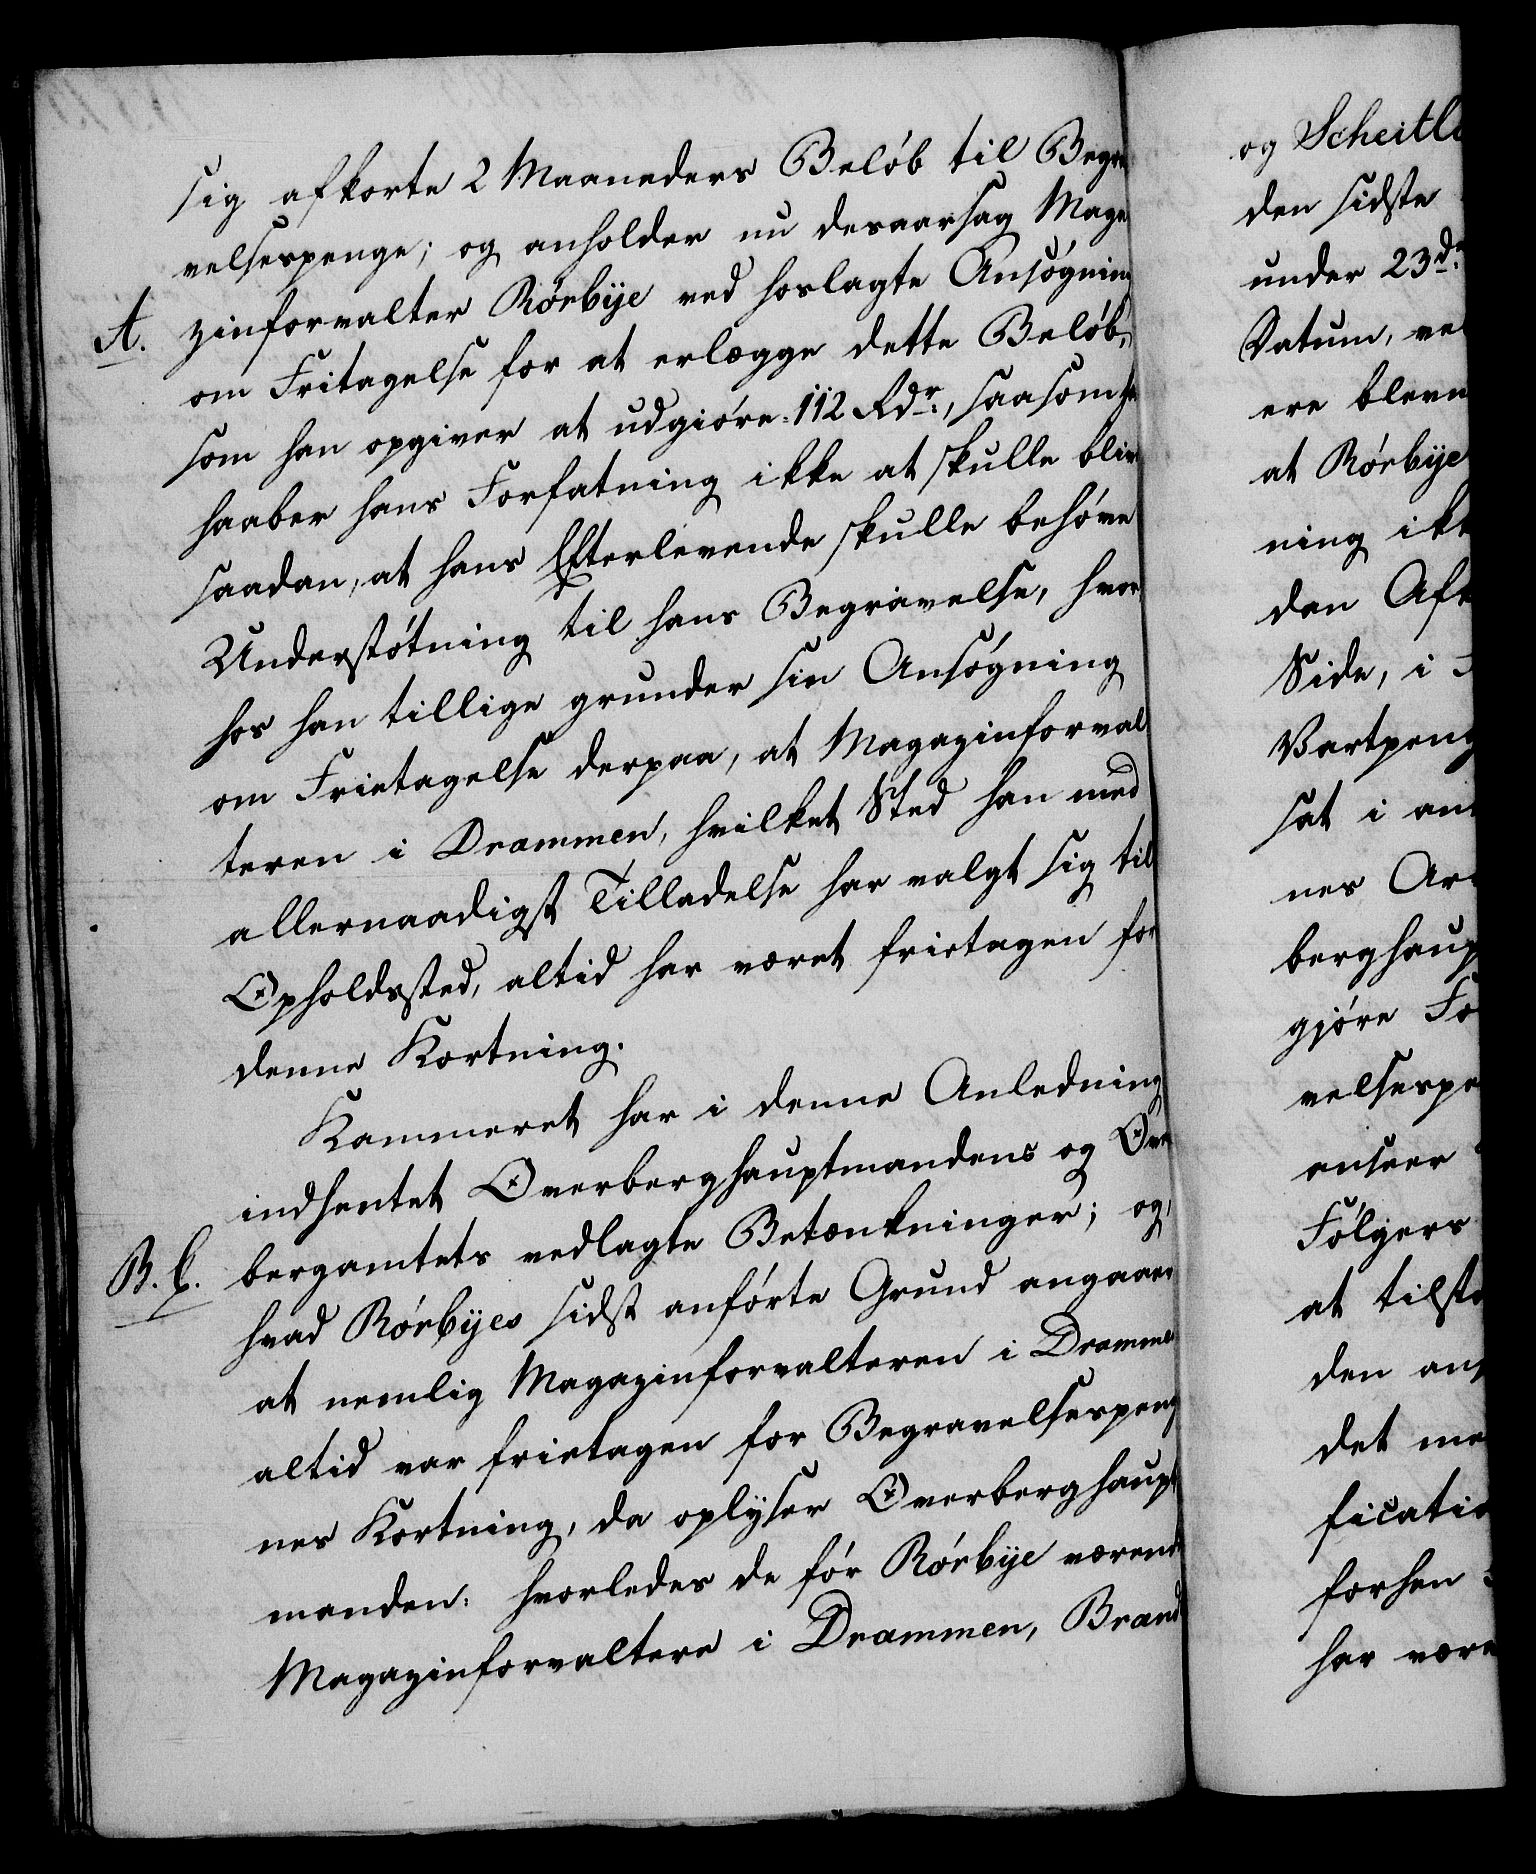 sig afkorte 2 Maaneders Beløb til Begra
velsespenge; og anholder nu desaarsag Maga
A. zinforvalter Rørbÿe ved hoslagte Ansøgning
om Fritagelse for at erlægge dette Beløb,
som han opgiver at udgiøre 112 Rdr., saasom
haaber hans Forfatning ikke at skulle bliv
saadan, at hans Efterlevende skulle behøve
Understøtning til hans Begravelse, hvor
hos han tillige grunder sin Ansøgning
om Frietagelse derpaa, at Magazinforval
teren i Drammen, hvilket Sted han med
allernaadigst Tilladelse har valgt sig til
Opholdssted, altid har været frietagen for
denne Kortning.
Kammeret har i denne Anledning
indhentet Overberghauptmandens og Over
B. C. bergamtets vedlagte Betænkninger; og,
hvad Rørbÿes sidst anførte Grund angaaer
at nemlig Magazinforvalteren i Dramme
altid var frietagen for Begravelsespeng
nes Kortning, da oplÿser Overberghaupt
manden: hvorledes de før Rørbÿe værend
Magazinforvaltere i Drammen, Brand
og Scheitl
den sidste
under 23de
Datum, ve
ere blevn
at Rørbÿe
ning ikk
den Aft
Side, i
Vartpeng
sat i an
nes Ar
berghaup
gjøre Fo
velsespe
anseer
Følgers
at tilst
den an
det me
ficatio
forhen
har være